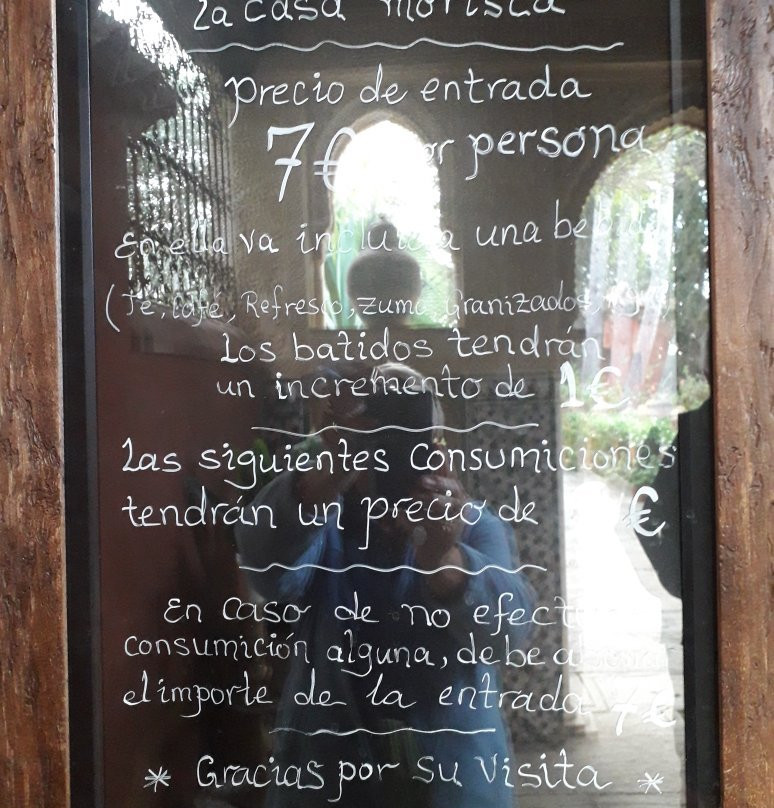 La casa morisca
precio de entrada
7€ por persona
En ella va incluida una bebida
(Té, Café, Refresco, Zumo, Granizados,
Los batidos tendrán
un incremento de 1€
Las siguientes Consumiciones
tendrán un precio de €
En caso de no
consumición alguna, debe
el importe de la entrada 7€
* Gracias por su visita *